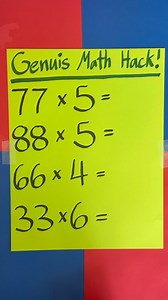 Genuis Math Hack!
77 × 5 =
88 × 5 =
66 × 4 =
33 × 6 =